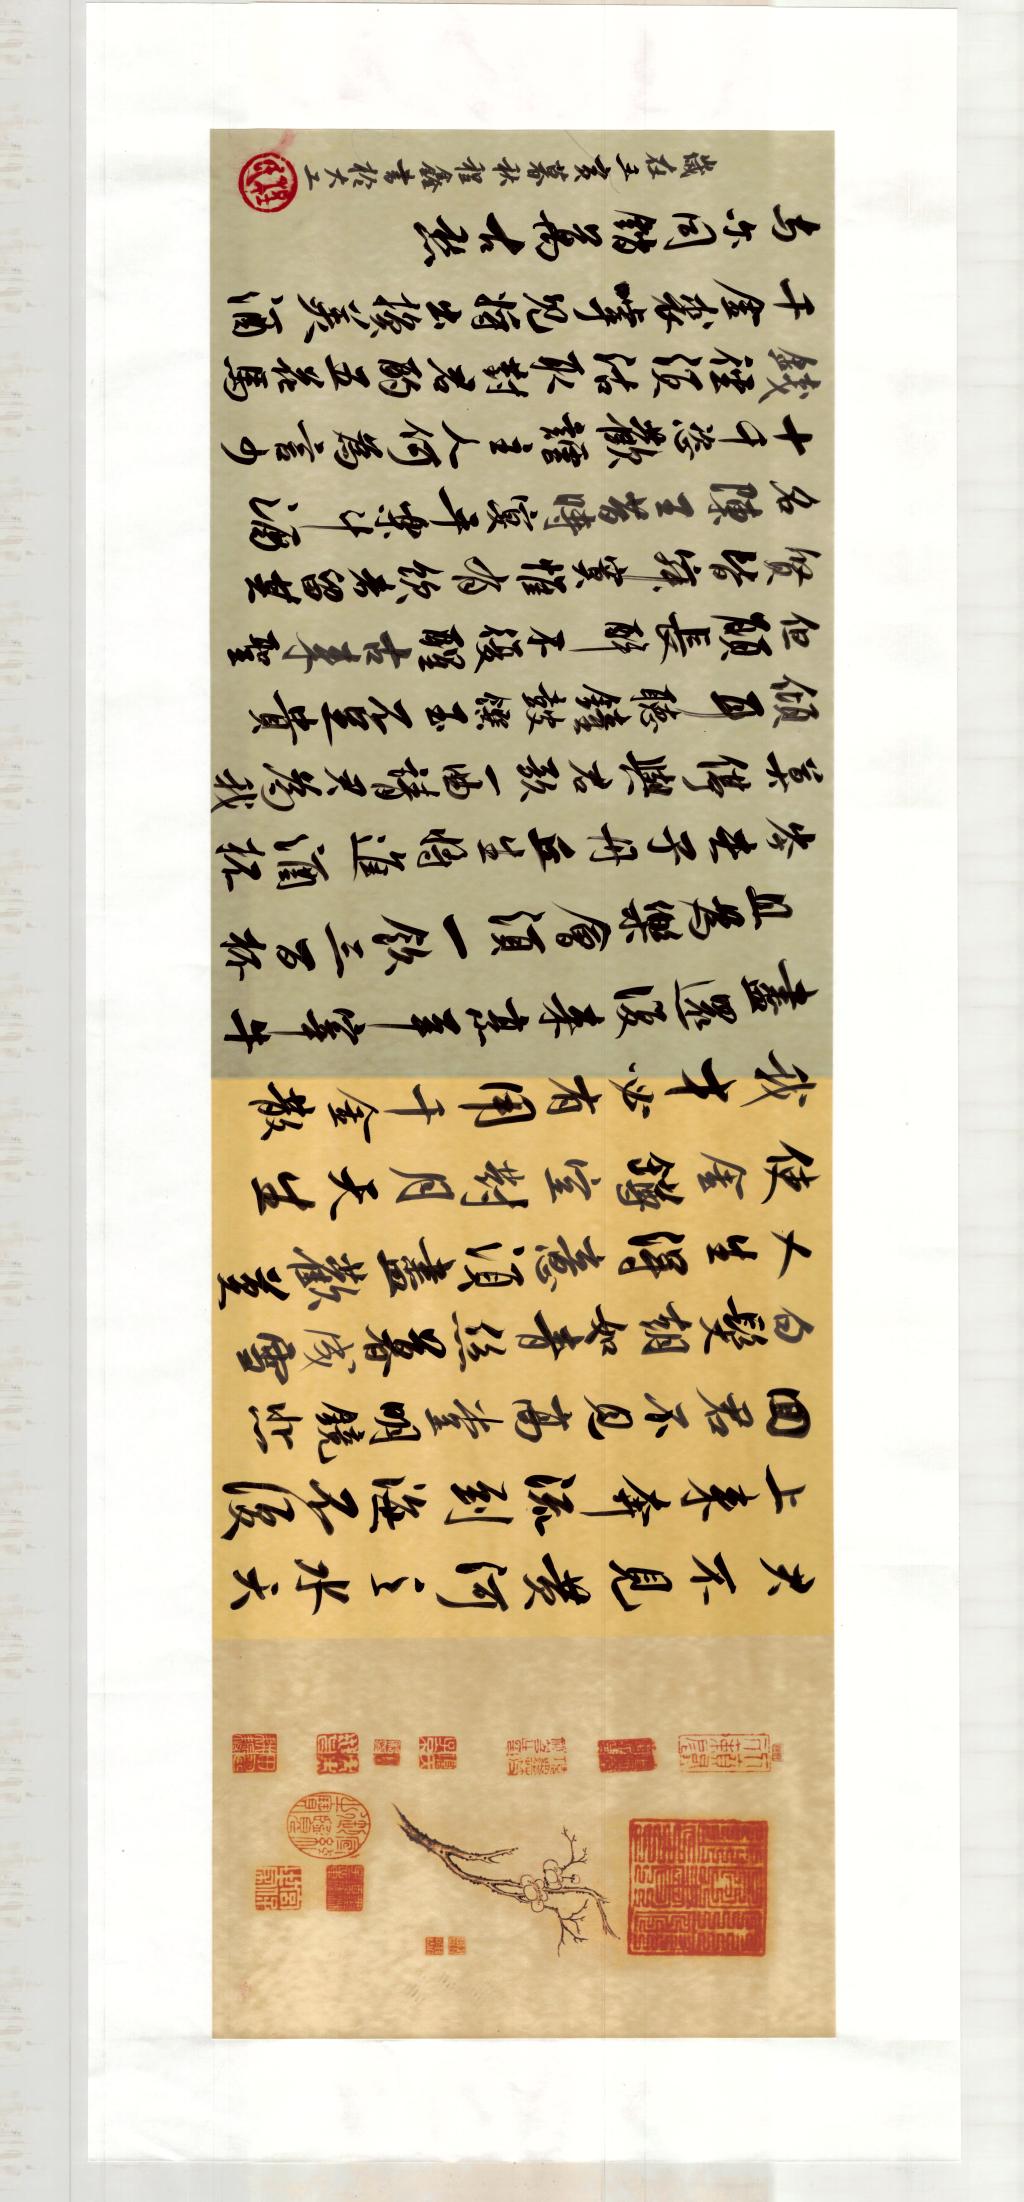 夫不見黃河之水天
上來奔流到海不復
回君不見高堂明鏡悲
白髮朝如青絲暮成雪
人生得意須盡歡莫
使金樽空對月天生
我才必有用千金散
盡還復來烹羊宰牛
且為樂會須一飲三百杯
岑夫子丹丘生將進酒杯
莫停與君歌一曲請君為我
傾耳聽鐘鼓饌玉不足貴
但願長醉不復醒古來聖
賢皆寂寞惟有飲者留其
名陳王昔時宴平樂斗酒
十千恣歡謔主人何為言少
錢徑須沽取對君酌五花馬
千金裘呼兒將出換美酒
与尔同銷萬古愁
歲在壬寅暮秋程鑫書於大工